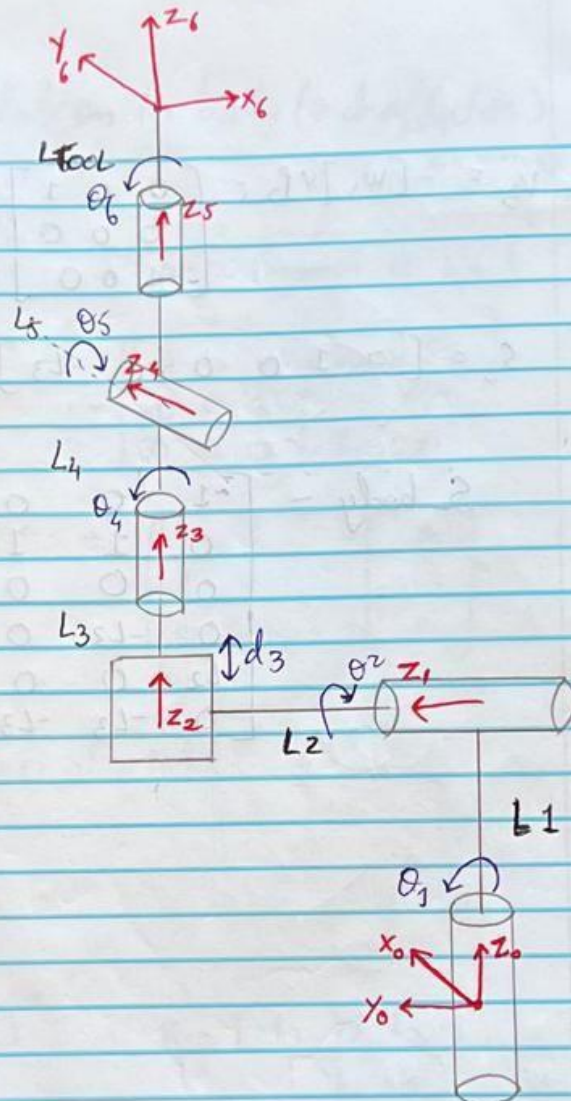 Z6
Y6
X6
LTOOL
θ6
Z5
L5
θ5
Z4
L4
θ4
Z3
L3
d3
Z2
θ2
Z1
L2
L1
θ1
X0
Z0
Y0